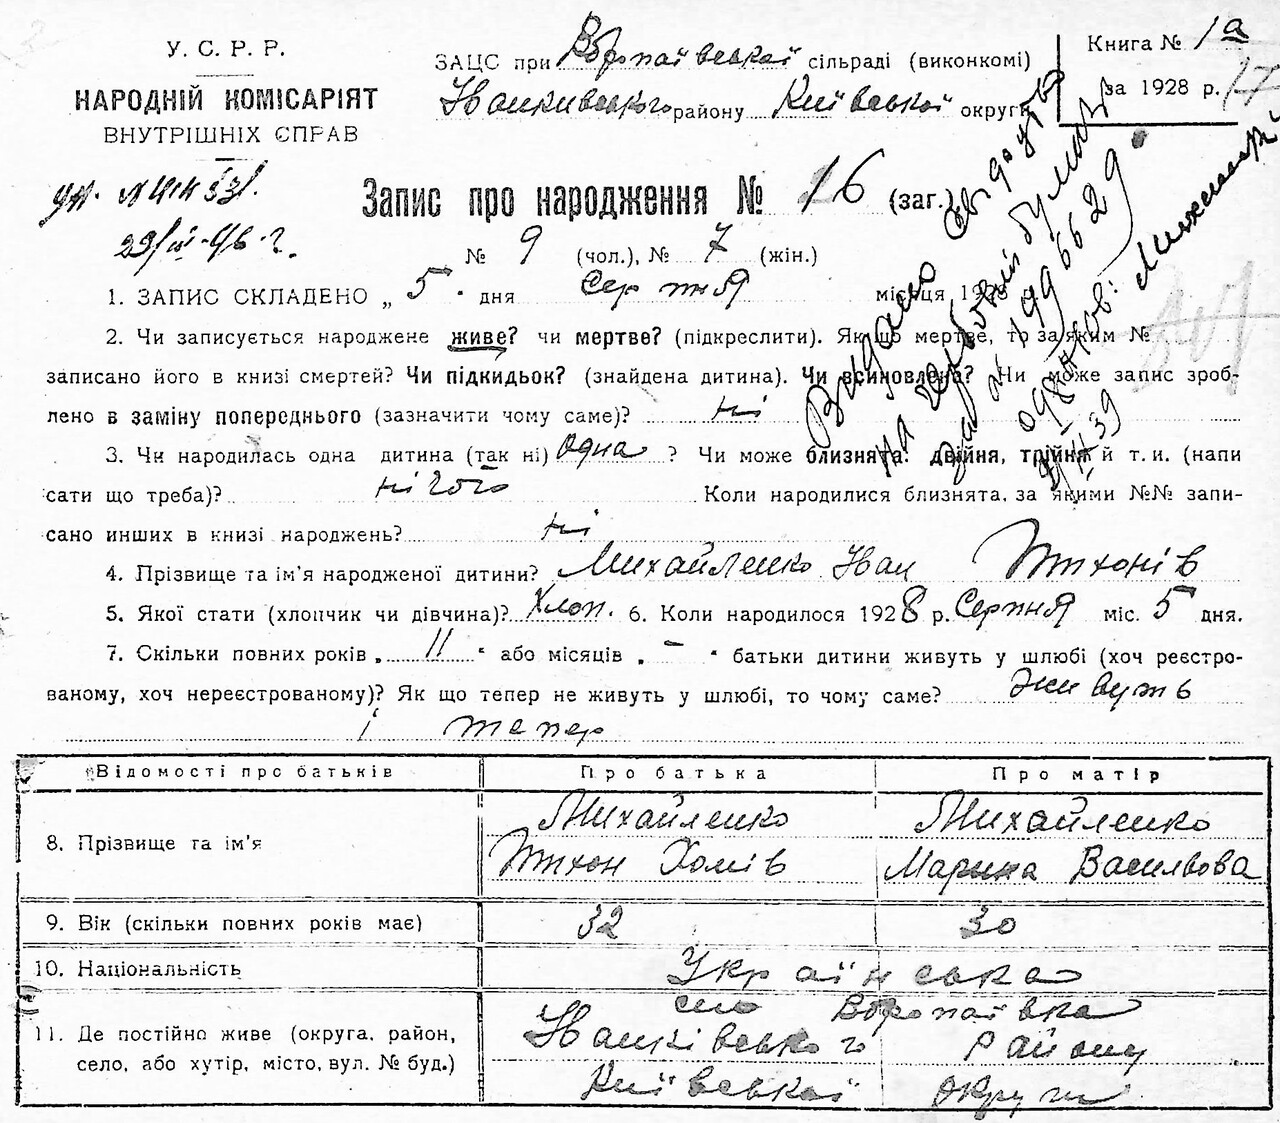 У. С. Р. Р.
НАРОДНІЙ КОМІСАРІЯТ
ВНУТРІШНІХ СПРАВ
ЗАЦС при Воропаївської сільраді (виконкомі)
Іванківського району Київської округи
Книга № 1а
за 1928 р.
17
Запис про народження № 16 (заг.)
№ 9 (чол.), № 7 (жін.)
1. ЗАПИС СКЛАДЕНО „ 5 " дня Серпня місяця 1928 р.
2. Чи записується народжене живе? чи мертве? (підкреслити). Як що мертве, то за яким №
записано його в книзі смертей? Чи підкидьок? (знайдена дитина). Чи всиновлена? Чи може запис зроб-
лено в заміну попереднього (зазначити чому саме)? ні
3. Чи народилась одна дитина (так ні) одна ? Чи може близнята: двійня, трійня й т. и. (напи
сати що треба)? нічого Коли народилися близнята, за якими №№ запи-
сано инших в книзі народжень? ні
4. Прізвище та ім'я народженої дитини? Михайленко Іван Тихонів
5. Якої стати (хлопчик чи дівчина)? Хлоп. 6. Коли народилося 1928 р. Серпня міс. 5 дня.
7. Скільки повних років „ 11 " або місяців „ – " батьки дитини живуть у шлюбі (хоч реєстро-
ваному, хоч нереєстрованому)? Як що тепер не живуть у шлюбі, то чому саме? живуть
і тепер
Відомості про батьків Про батька Про матір
8. Прізвище та ім'я Михайленко Тихон Хомів Михайленко Марина Васильова
9. Вік (скільки повних років має) 32 30
10. Національність Українська
11. Де постійно живе (округа, район,
село, або хутір, місто, вул. № буд.)
село Воропаївка
Іванківського району
Київської округи
Видано свідоцтво
на гербовій бумазі
за № 1996629